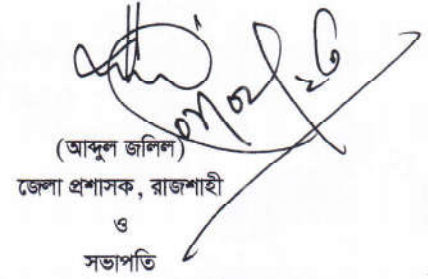 (আব্দুল জলিল)
জেলা প্রশাসক, রাজশাহী
ও
সভাপতি